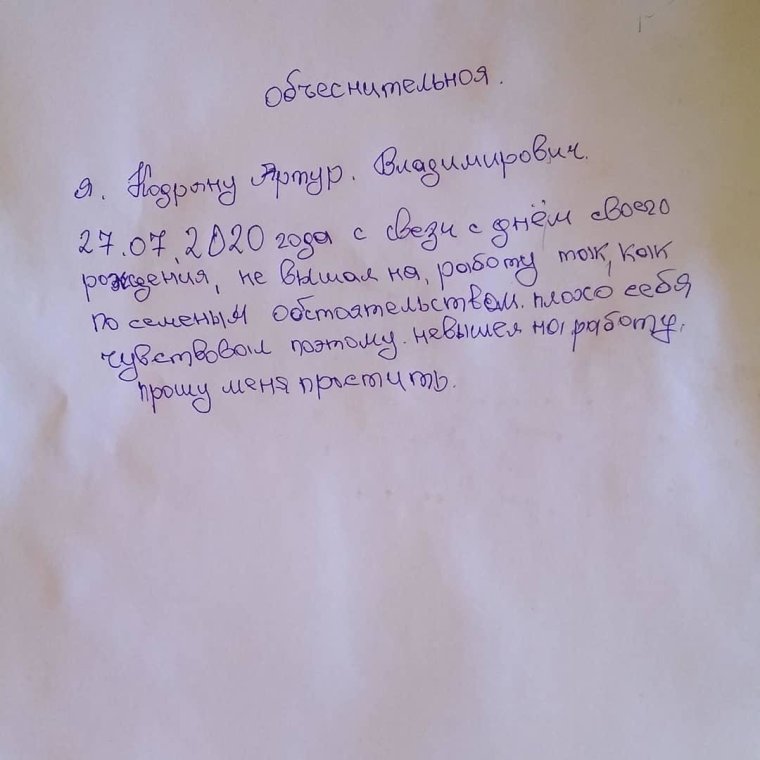 Объеснительноя.
Я. Кодряну Артур. Владимирович.
27.07.2020 года с свези с днём своего
рождения, не вышал на, работу так, как
по семеным обстоятельствам. плохо себя
чувствовал поэтому. невышел на работу.
прошу меня простить.